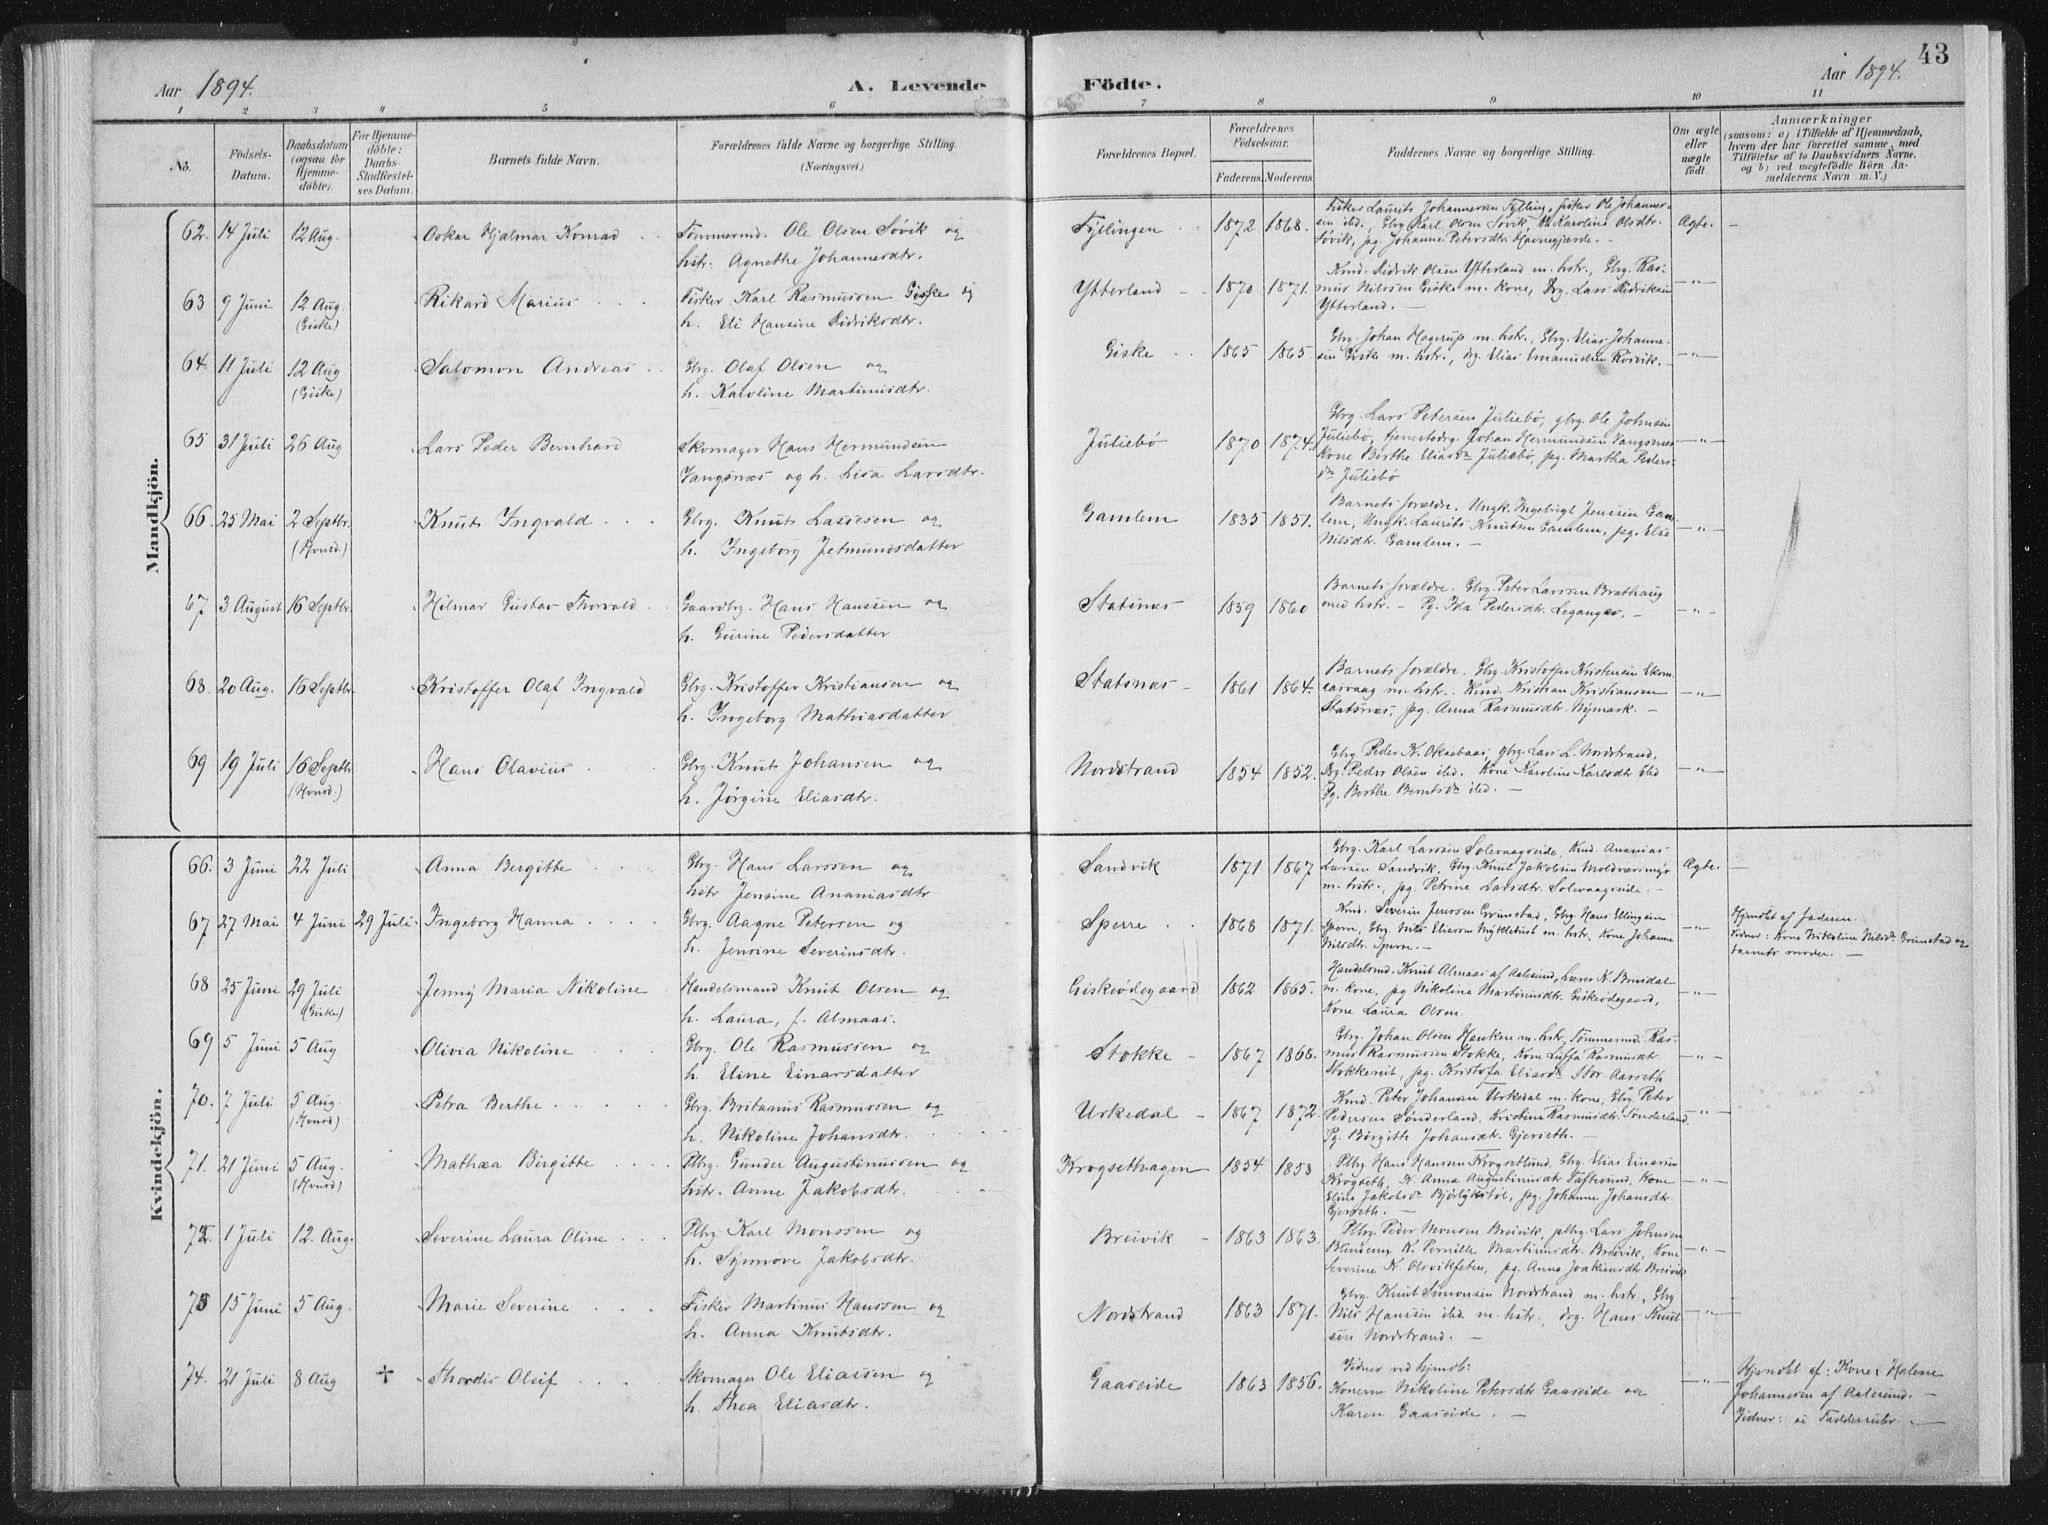 43
Aar 1894.
A. Levende Födte.
Aar 1894.
1 2 3 4 5 6 7 8 9 10 11
No.
Födsels-Datum.
Daabsdatum (ogsaa for Hjemme-döbte).
For Hjemme-döbte: Daabs-Stadfæstel-ses Datum.
Barnets fulde Navn.
Forældrenes fulde Navne og borgerlige Stilling. (Næringsvei.)
Forældrenes Bopæl.
Forældrenes Födselsaar.
Faderens. Moderens.
Faddernes Navne og borgerlige Stilling.
Om ægte eller uægte födt.
Anmærkninger
(saasom: a) i Tilfælde af Hjemmedaab, hvem der har forrettet samme, med Tilföielse af to Daabsvidners Navne, og b) ved uægtefödte Börn An-melderens Navn m. V.)
Mandkjön.
62. 14 Juli 12 Aug. Oskar Hjalmar Konrad Tømmermd. Ole Olsen Søvik og
hstr. Agnethe Johannesdtr.
Fyllingen 1872 1868. Fisker Laurits Johannessen Fylling, fisker Ole Johannes-
sen ibd., Gbrg Karl Olsen Søvik, K. Karoline Olsdtr.
Søvik, pg. Johanne Petersdtr. Havnegjærde. – Ægte. –
63 9 Juni 12 Aug. (Giske) Rikard Marius Fisker Karl Rasmussen Giske og
h. Eli Hansine Didriksdtr.
Ytterland 1870 1871. Kmd. Didrik Olsen Ytterland m. hstr., Gbrg. Ras-
mus Nilssen Giske m. Kone, Drg. Lars Didriksen
Ytterland. – – " –
64. 11 Juli 12 Aug (Giske) Salomon Andreas Gbrg. Olaf Olsen og
h. Karoline Martinusdtr.
Giske 1865 1865. Gbrg Johan Hagerup m. hstr., Gbrg. Elias Johanne-
sen Giske m. hstr., drg. Elias Emanuelsen Rosvik. – – " –
65 31 Juli 26 Aug Lars Peder Bernhard Skomager Hans Hermundsen
Vangsnæs og h. Lisa Larsdtr.
Juliebø 1870 1874. Gbrg. Lars Petersen Juliebø, gbrg. Ole Johnsen
Juliebø, tjenestedrg. Johan Hermundsen Vangsnæs
Kone Berthe Eliasdr Juliebø, pg. Martha Peders-
dtr Juliebø – " –
66. 25 Mai 2 Septbr. (Hvnsd.) Knut Ingvald Gbrg. Knut Lassesen og
h. Ingeborg Jetmundsdatter
Gamlem 1835 1851. Barnets forældre. Ungk. Ingebrigt Jenssen Gam-
lem, Ungk. Laurits Knutsen Gamlem, pg. Else
Nilsdtr. Gamlem. – – " –
67 3 August 16 Septbr. Hilmar Gustav Thorvald Gaardbrg. Hans Hanssen og
h. Gurine Pedersdatter
Statsnæs 1859 1860 Barnets forældre. Gbrg. Peter Larssen Brathaug
med hstr. – Pg. Ida Pedersdtr. Leganger. – – " –
68. 20 Aug. 16 Septbr. Kristoffer Olaf Ingvald Gbrg. Kristoffer Kristiansen og
h. Ingeborg Mathiasdatter
Statsnæs – 1861 1864. Barnets forældre. Gbrg Kristoffer Kristensen
m. hstr. – Kmd. Kristian Kristiansen
Statsnæs, pg. Anna Rasmusdtr. Nymark. – – " –
69 19 Juli 16 Septbr (Hvnsd.) Hans Olavius Gbrg. Knut Johansen og
h. Jørgine Eliasdtr.
Nordstrand 1854 1852. Gbrg Peder K. Oksebaas, gbrg. Lars L. Nordstrand,
Drg. Peder Olsen ibd. Kone Karoline Karlsdtr ibd
Pg. Berthe Berntsdr ibd. – – " –
Kvindekjön.
66. 3 Juni 22 Juli Anna Bergitte Gbrg. Hans Larssen og
hstr Jensine Ananiasdtr
Sandvik 1871 1867 Gbrg. Karl Larssen Solevaagseide, Kmd. Ananias
Larsen Sandvik, Gbrg Knut Jakobsen Moldværsmyr
m. hstr., pg. Petrine Larsdtr. Solevaagseide. – Ægte. –
67 27 Mai 4 Juni 29 Juli Ingeborg Hanna Gbrg. Aagne Petersen og
h. Jensine Severinsdtr.
Sperre 1868 1871. Kmd. Severin Jenssen Grimstad, Gbrg Hans Ellingsen
Sperre, Gbrg Nils Eliassen Mykletust m. hstr, Kone Johanne
Nilsdtr. Sperre. – – " – Hjmdbt af Faderen.
Vidner: Kone Nikoline Nilsdr Grimstad og
barnets moder. –
68 25 Juni 29 Juli (Giske) Jenny Maria Nikoline Handelsmand Knut Olsen og
h. Laura, f. Almaas.
Giskeødegaard 1862 1865. Handelsmd. Knut Almaas af Aalesund, Lærer N. Brusdal
m. Kone, pg Nikoline Martinusdtr. Giskeødegaard,
Kone Laura Olsen – " –
69 5 Juni 5 Aug Olivia Nikoline Gbrg. Ole Rasmussen og
h. Eline Einarsdatter
Stokke – 1867 1868. Gbrg. Johan Olsen Hanken m. hstr, Tømmermd. Ras-
mus Rasmussen Stokke, Kone Luffa Rasmusdtr.
Stokkereit, pg. Kristofa Eliasdr Stor-Aarseth – " –
70. 7 Juli 5 Aug. (Hvnsd) Petra Berthe Gbrg. Britanus Rasmussen og
h. Nikoline Johansdtr.
Urkedal – 1867 1872. Kmd. Peter Johansen Urkedal m. Kone, Gbrg. Peter
Pedersen Sønderland, Kristine Rasmusdtr. Sønderland
Pg. Børgitte Johansdtr. Gjerseth. – – " –
71. 21 Juni 5 Aug. (Hvnsd) Mathea Birgitte Plbrg. Gunder Augustinussen og
hstr. Anne Jakobsdtr.
Krogsethagen 1854 1858 Plbrg Hans Hanssen Krogsetlund, Gbrg. Elias Einarsen
Krogseth, K. Anna Augustinusdtr Taftesund, Kone
Eline Jakobsdr Bjørlykstøl, pg. Johanne Johansdtr
Gjerseth. – – " –
72. 1 Juli 12. Aug. Severine Laura Oline Plbrg Karl Monssen og
h. Synnøve Jakobsdtr.
Breivik – 1863 1863. Plbrg. Peder Monsen Breivik, plbrg. Lars Johnsen
K. Pernille Martinusdtr. Breivik, Kone
Severine K. Olsvikfeten, pg. Anna Joakimsdtr Breivik – " –
73 15 Juni 5 Aug. Marie Severine Fisker Martinus Hanssen og
h. Anna Knutsdtr.
Nordstrand 1863 1871. Gbrg. Knut Simonsen Nordstrand m. hstr., Gbrg
Nils Hanssen ibd m. hstr., drg. Hans Knut-
sen Nordstrand. – – " –
74. 21 Juli 8 Aug + Thordis Oleif Skomager Ole Eliassen og
h. Thea Eliasdtr.
Gaaseide 1863 1856. Vidner ved hjmdb:
Konerne Nikoline Petersdtr Gaaseide og
Karen Gaaseide. – – " – Hjemdbt af: Kone Helene
Johannesen af Aalesund. –
Vidner: se Fadderrubr. –